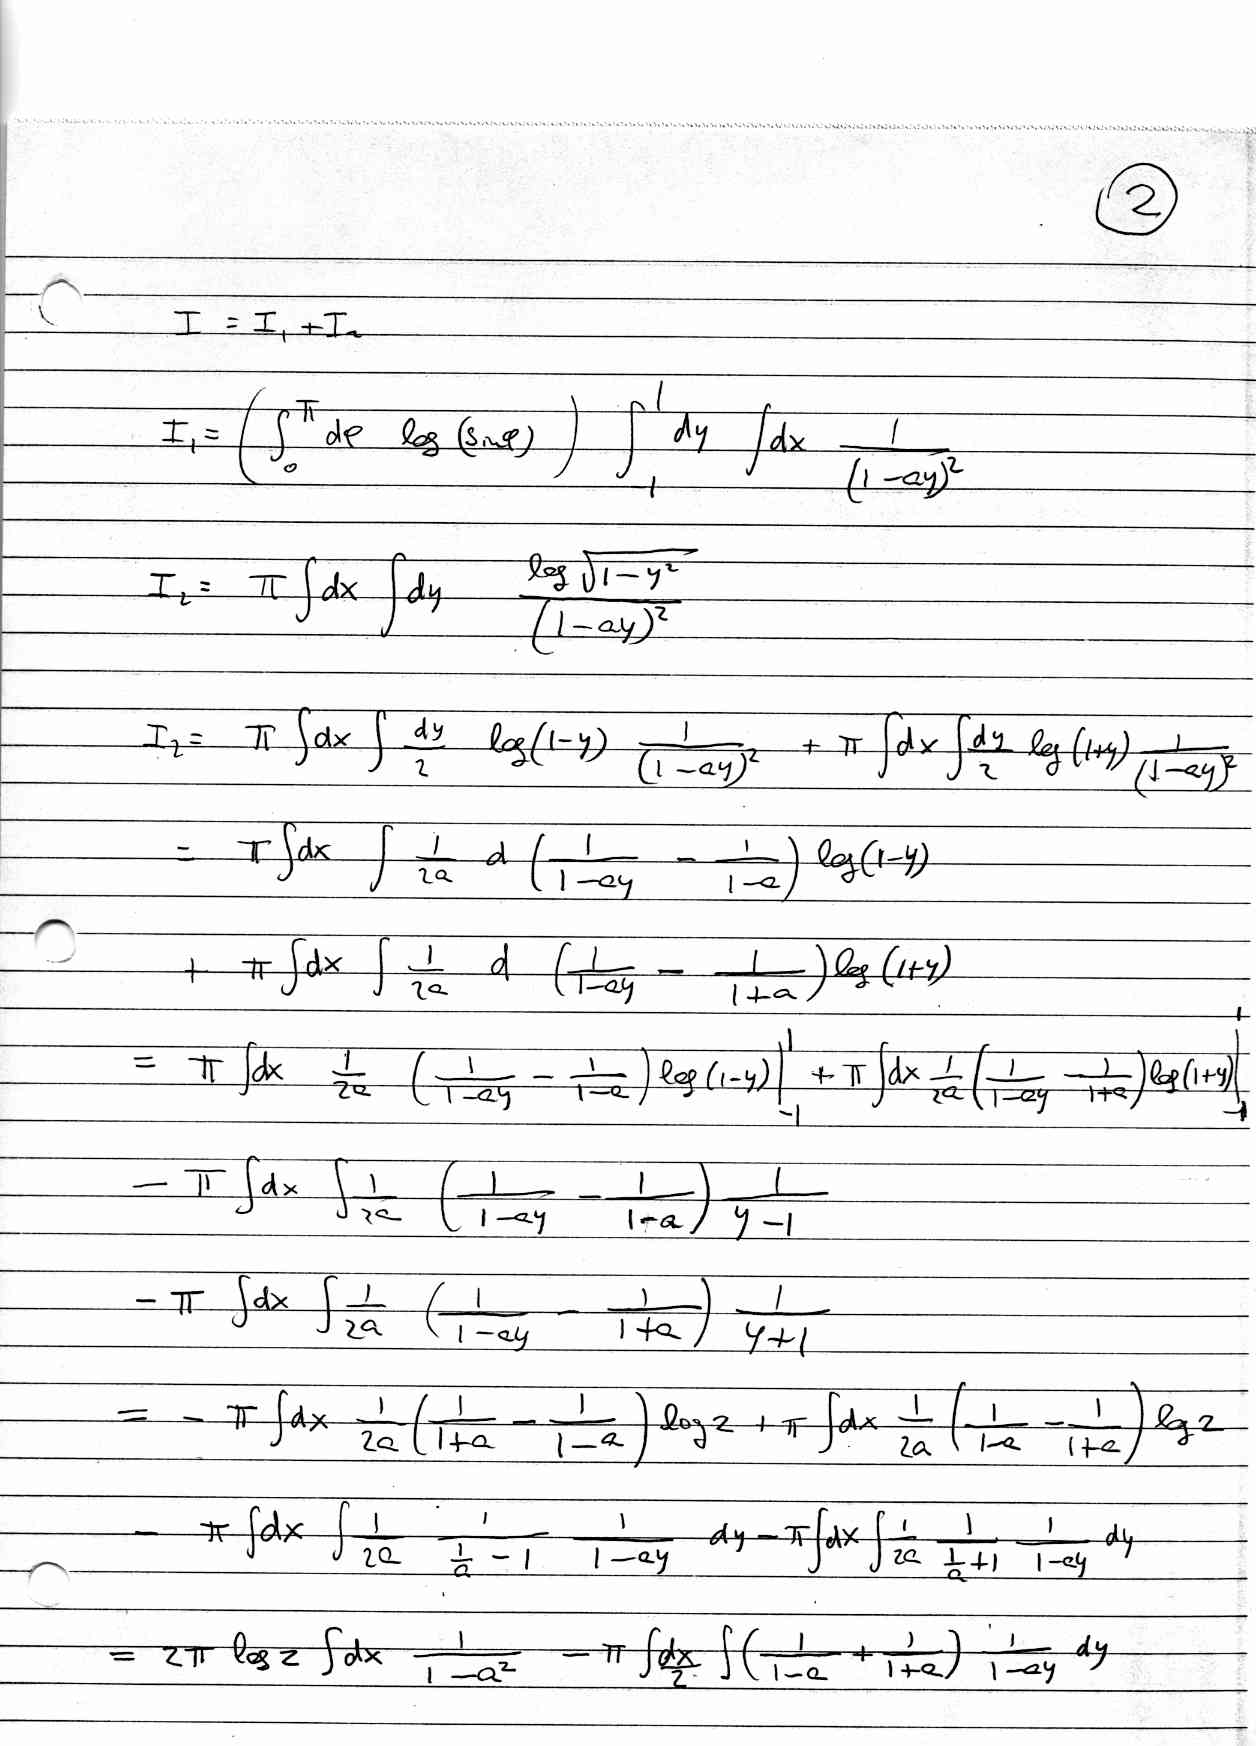 2
I = I₁ + I₂
I₁ = (∫₀^π dφ log (sin φ)) ∫₋₁¹ dy ∫dx 1/(1-ay)²
I₂ = π ∫dx ∫dy log √(1-y²) / (1-ay)²
I₂ = π ∫dx ∫ dy/2 log(1-y) 1/(1-ay)² + π ∫dx ∫ dy/2 log(1+y) 1/(1-ay)²
= π ∫dx ∫ 1/2a d (1/(1-ay) - 1/(1-a)) log(1-y)
+ π ∫dx ∫ 1/2a d (1/(1-ay) - 1/(1+a)) log(1+y)
= π ∫dx 1/2a (1/(1-ay) - 1/(1-a)) log(1-y) |₋₁¹ + π ∫dx 1/2a (1/(1-ay) - 1/(1+a)) log(1+y) |₋₁¹
- π ∫dx ∫ 1/2a (1/(1-ay) - 1/(1-a)) 1/(y-1)
- π ∫dx ∫ 1/2a (1/(1-ay) - 1/(1+a)) 1/(y+1)
= - π ∫dx 1/2a (1/(1+a) - 1/(1-a)) log 2 + π ∫dx 1/2a (1/(1-a) - 1/(1+a)) log 2
- π ∫dx ∫ 1/2a 1/(1/a - 1) 1/(1-ay) dy - π ∫dx ∫ 1/2a 1/(1/a + 1) 1/(1-ay) dy
= 2π log 2 ∫dx 1/(1-a²) - π ∫ dx/2 ∫ (1/(1-a) + 1/(1+a)) 1/(1-ay) dy